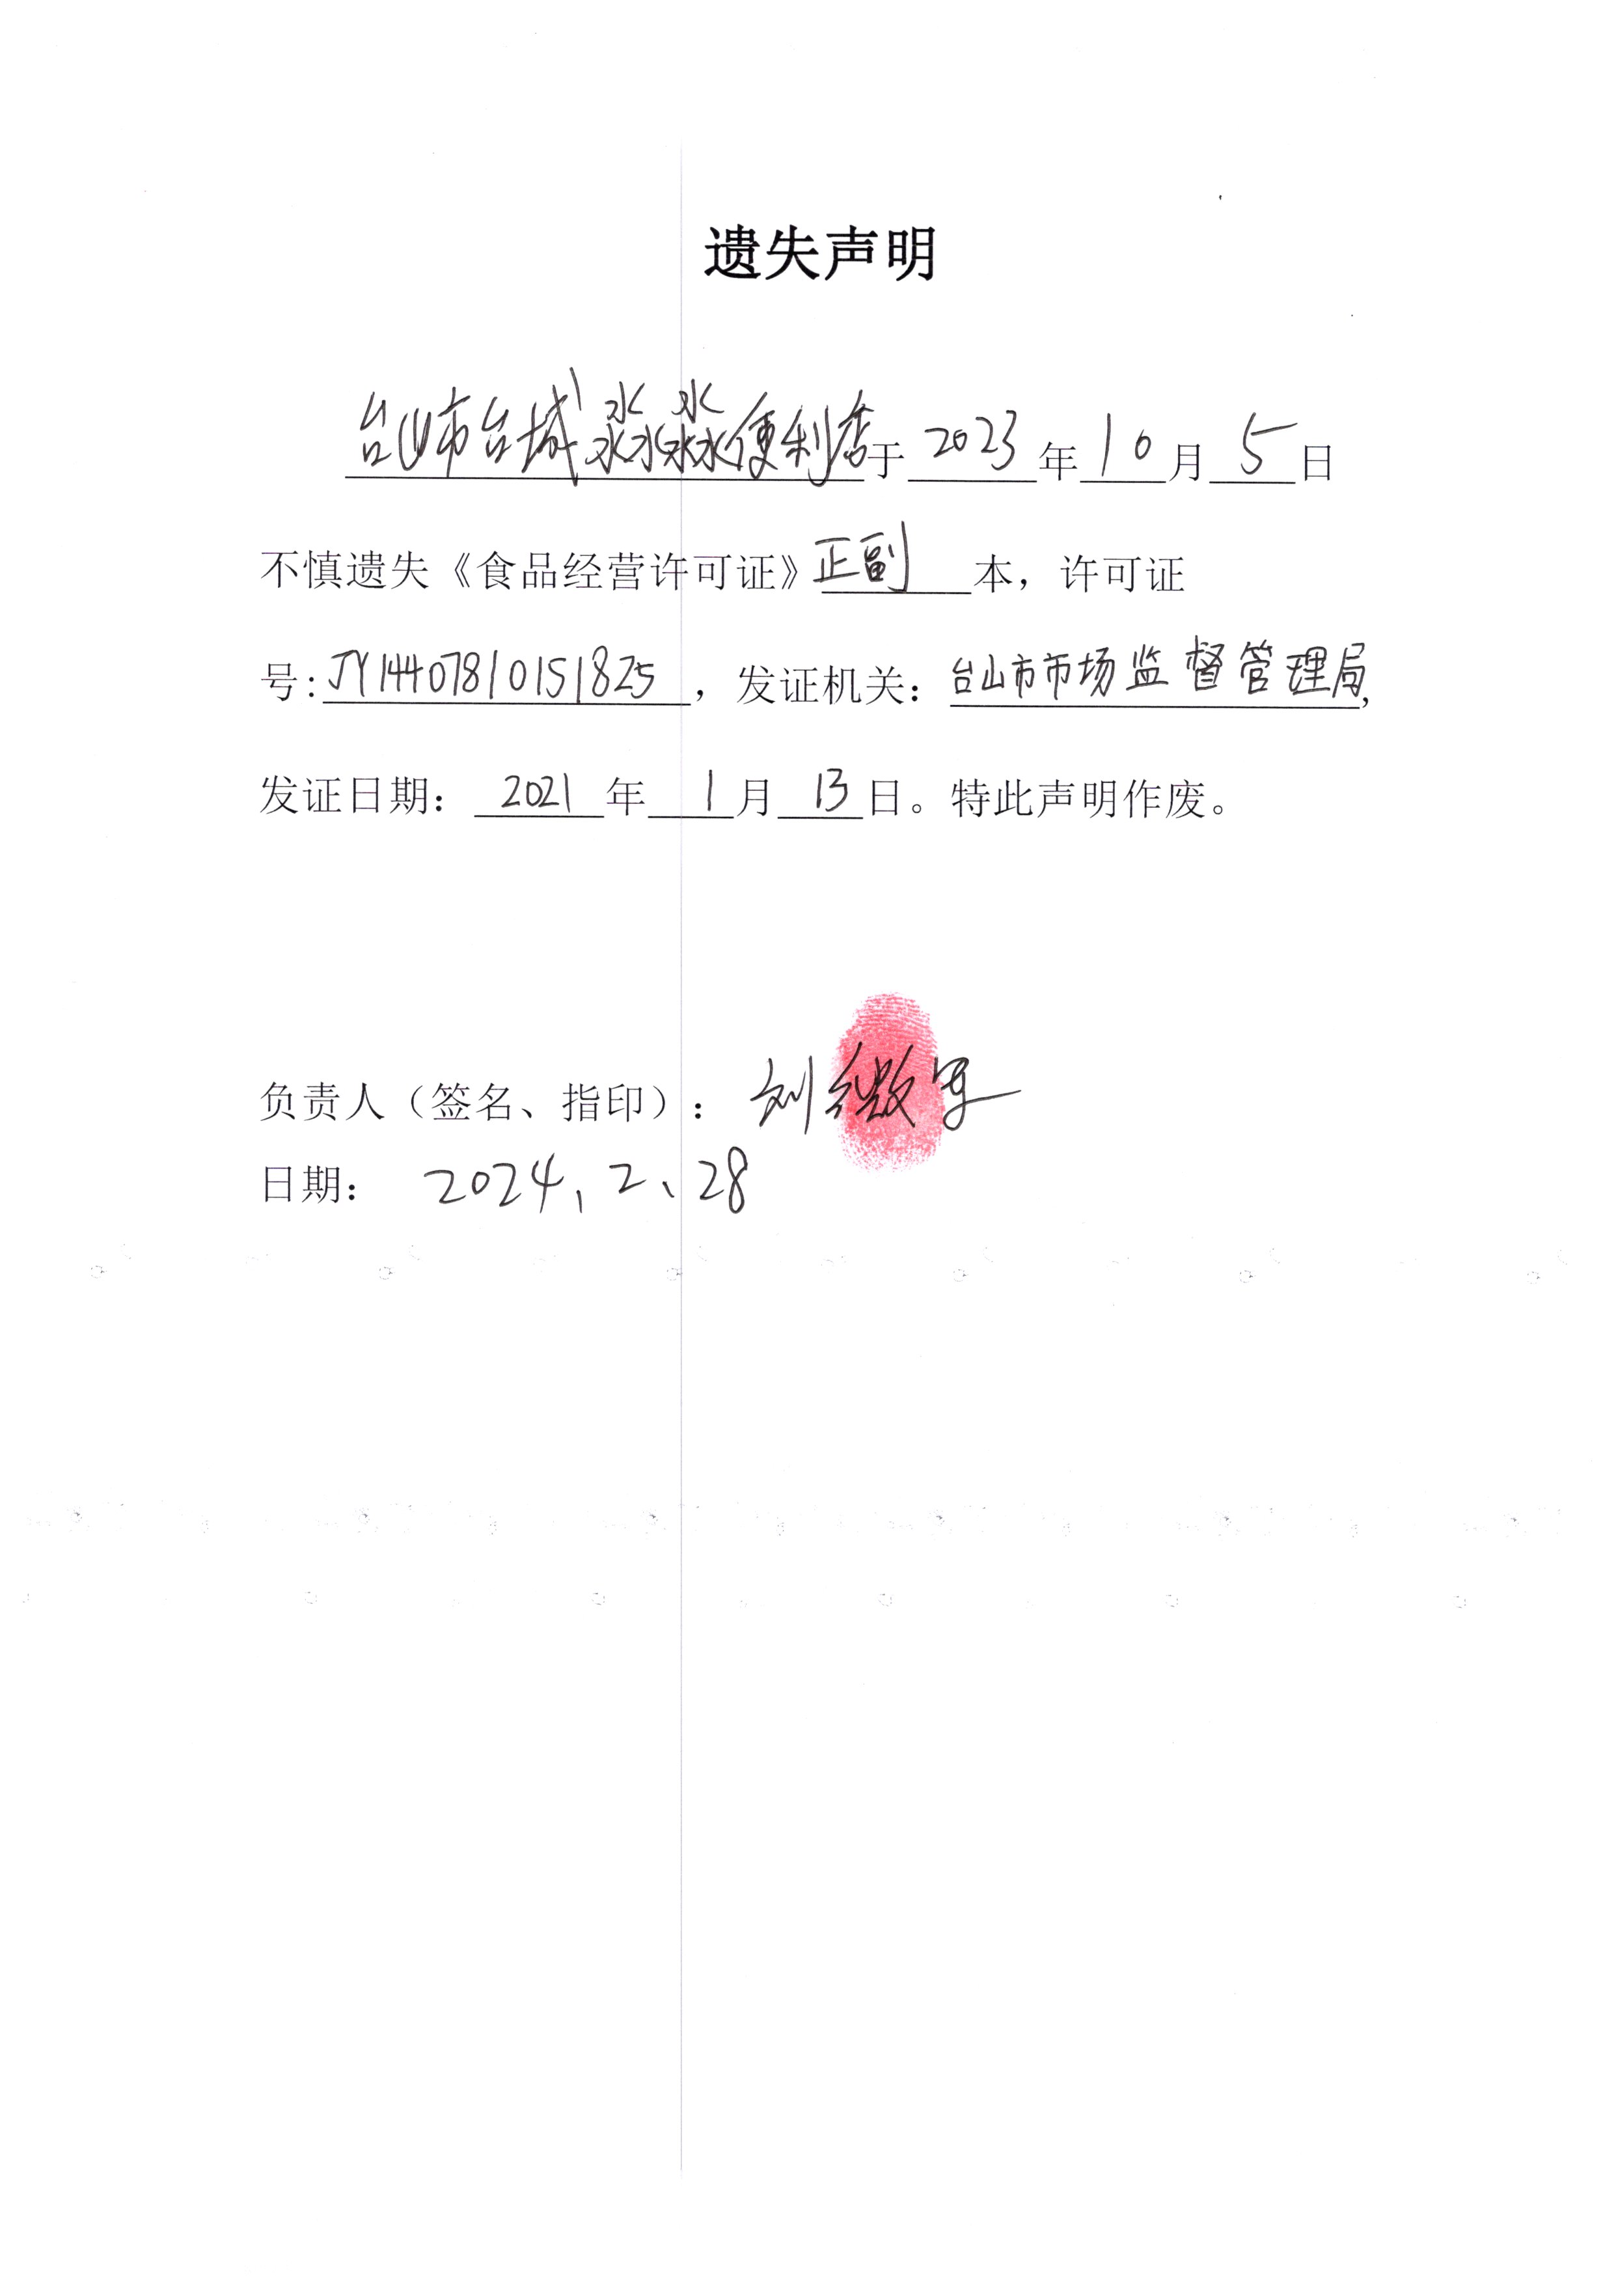 遗失声明
台山市台城淼淼便利店于2023年10月5日
不慎遗失《食品经营许可证》正副本，许可证
号：JY14407810151825，发证机关：台山市市场监督管理局，
发证日期：2021年1月13日。特此声明作废。
负责人（签名、指印）：刘
日期：2024、2、28